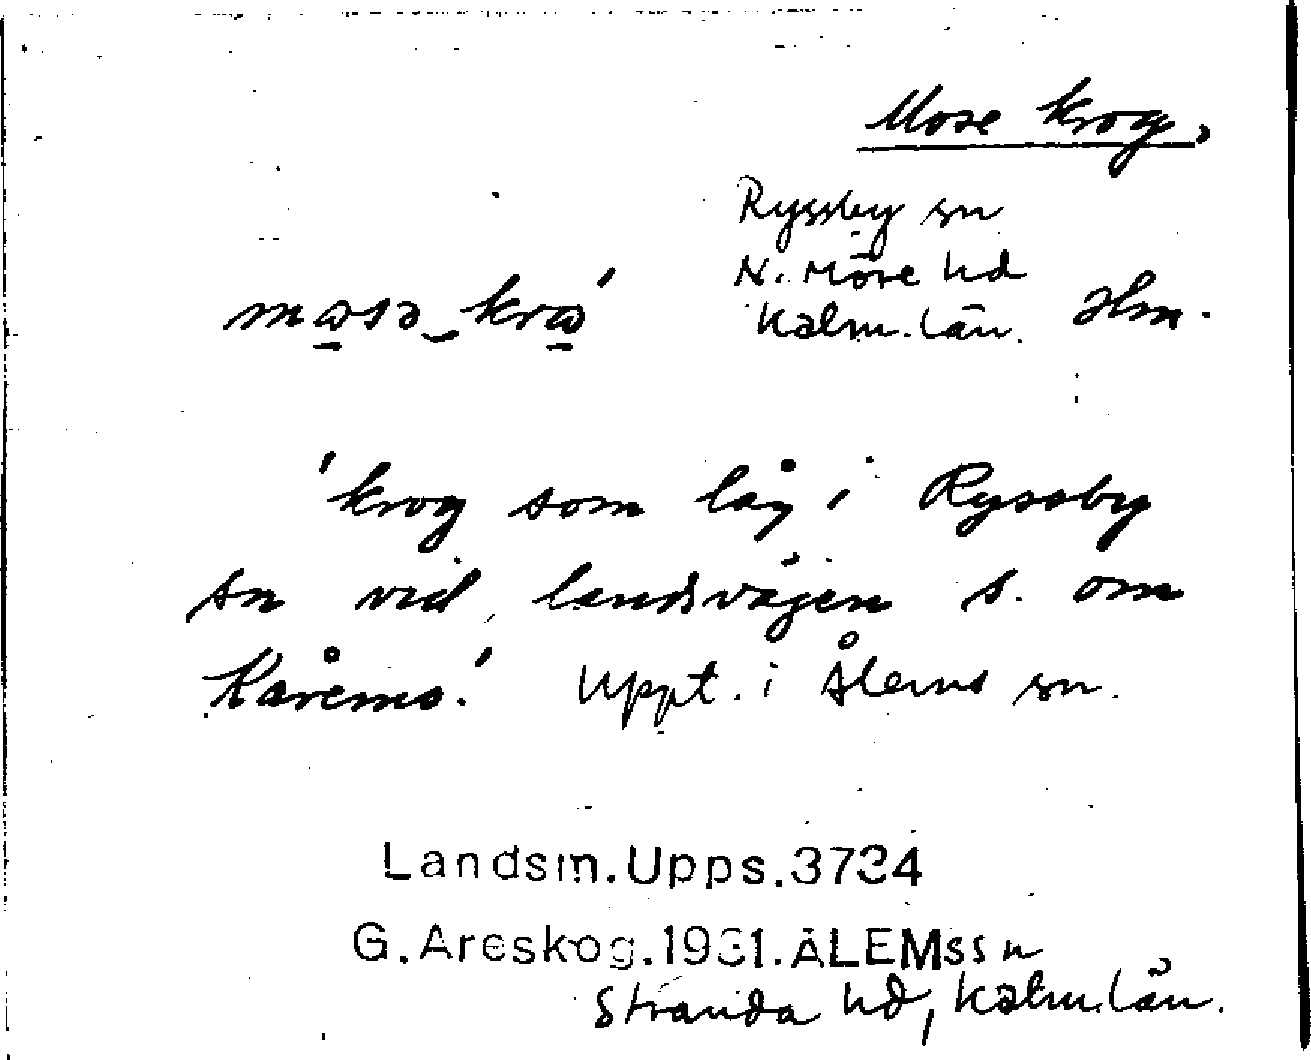 Mose krog,
Ryssby sn
N. Möre hd
masə_kra' Kalm. län. Hm.
'krog som låg i Ryssby
sn vid landsvägen s. om
Råremo.' Uppt. i Ålems sn.
Landsm.Upps.3734
G.Areskog.1931.ÅLEMs sn
Stranda hd, Kalm. län.